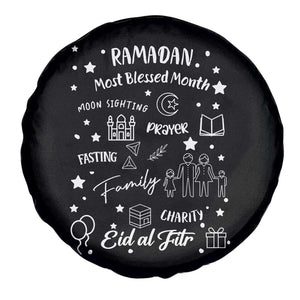 RAMADAN
Most Blessed Month
MOON SIGHTING
PRAYER
FASTING
Family
CHARITY
Eid al Fitr